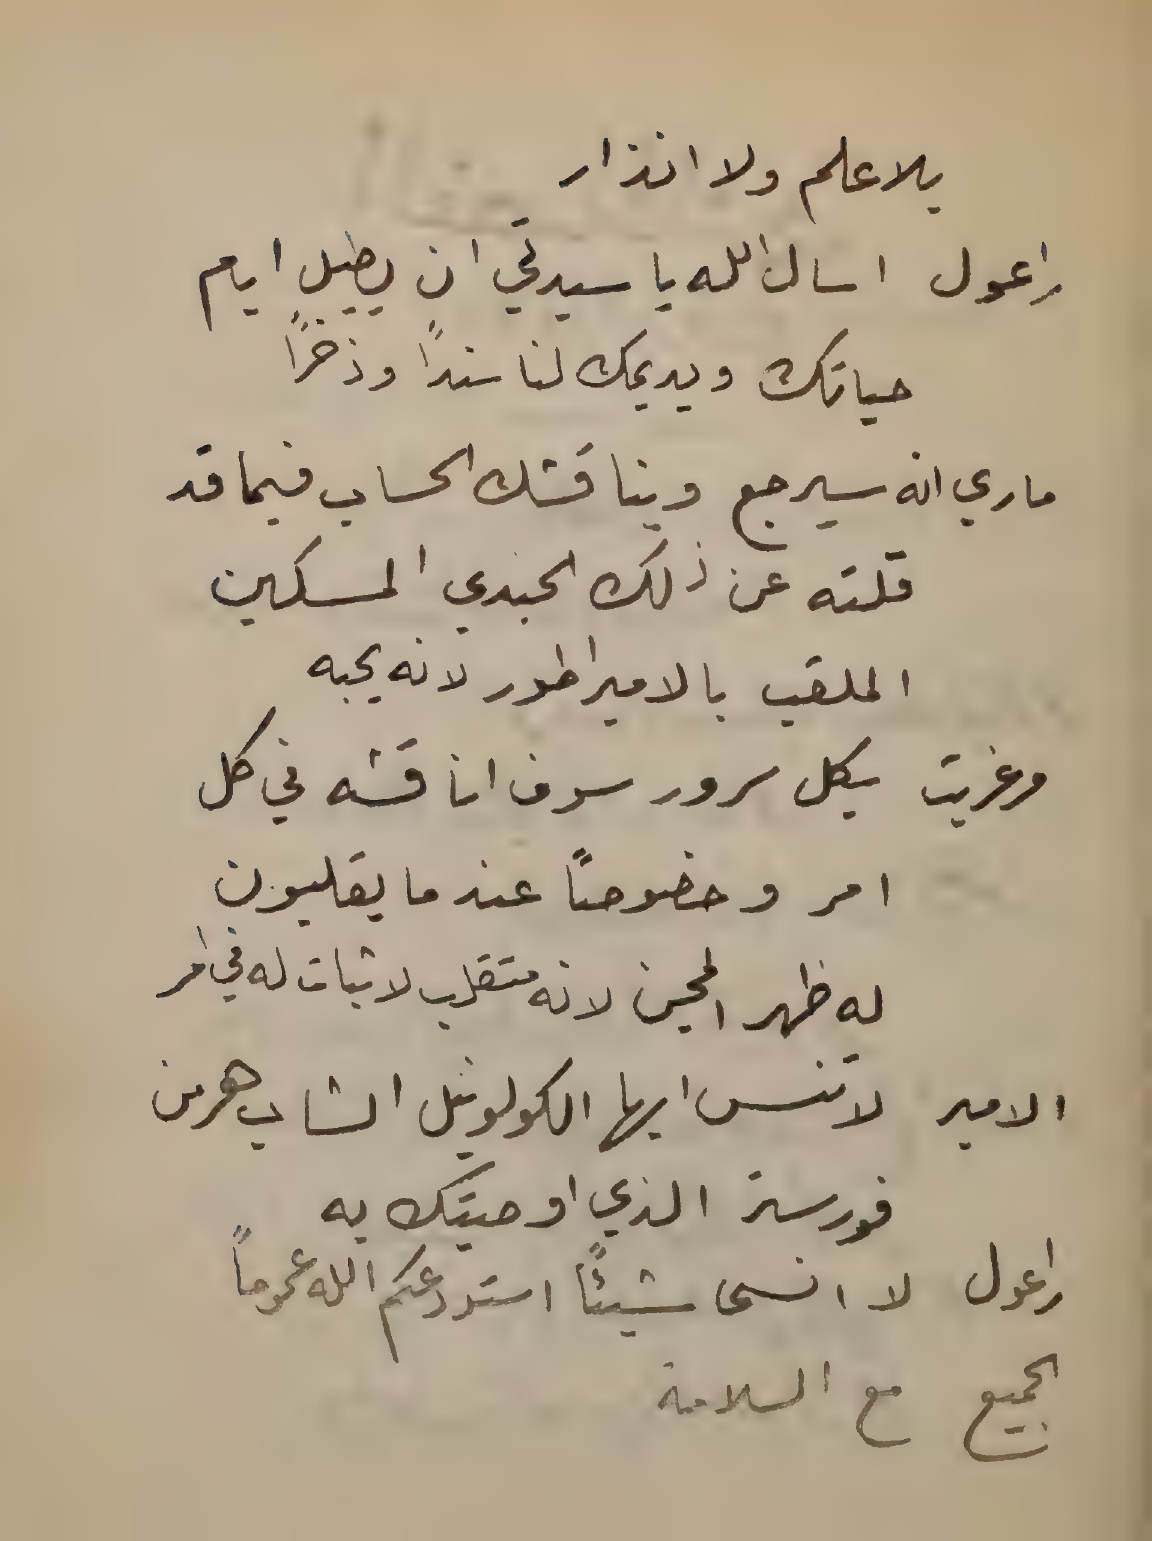 بلا علم ولا انذار
راعول اسال الله يا سيدتي ان يطيل ايام
حياتك ويديمك لنا سنداً وذخراً
ماري انه سيرجع ويناقشك الحساب فيما قد
قلته عن ذلك الجندي المسكين
الملقب بالامبراطور لانه يحبه
مرغريت بكل سرور سوف اناقشه في كل
امر وخصوصاً عندما يقلبون
له ظهر المجن لانه متقلب لا ثبات له في امر
الامير لا تنس ايها الكولونيل الشاب هرمن
فورستر الذي اوصيتك به
راعول لا انسى شيئاً استودعكم الله عموماً
الجميع مع السلامة